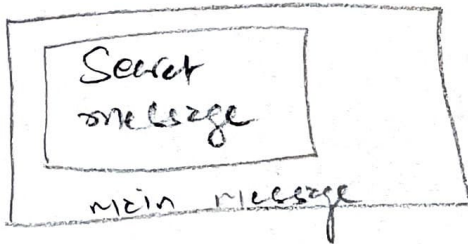 Secret
message
main message